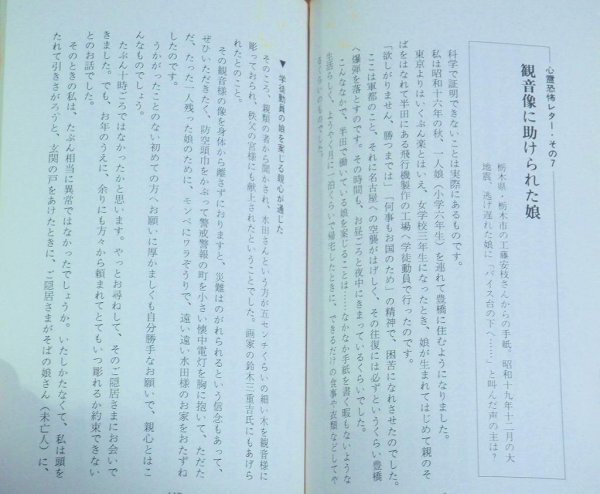 心霊恐怖レター・その7
観音像に助けられた娘
栃木県・栃木市の工藤安枝さんからの手紙。昭和十九年十二月の大
地震、逃げ遅れた娘に「バイス台の下へ……」と叫んだ声の主は？
科学で証明できないことは実際にあるものです。
私は昭和十六年の秋、一人娘（小学六年生）を連れて豊橋に住むようになりました。
東京よりはいくぶん楽とはいえ、女学校三年生になったとき、娘が生まれてはじめて親のそ
ばをはなれて半田にある飛行機製作の工場へ学徒動員で行ったのです。
「欲しがりません、勝つまでは」「何事もお国のため」の精神で、困苦になれさせたのでした。
ここは軍都のこと、それに名古屋への空襲がはげしく、その往復には必ずというくらい豊橋
へ爆弾を落とすのです。その時間も、お昼ごろと夜中にきまっているくらいでした。
こんななかで、半田で働いている娘を案じることは……なかなか手紙を書く暇もないような
生活らしく、ようやく月に一泊くらいで帰宅したときに、できるだけの食事や衣類などしてや
▼学徒動員の娘を案じる親心が通じた
そのころ、親類の者から聞かされ、水田さんという方が五センチくらいの細い木を観音様に
彫っておられ、秩父の宮様にも献上されたということでした。画家の鈴木三重吉氏にもあげら
れたとのこと、
その観音様の像を身体から離さずにおりますと、災難はのがれられるという信念もあって、
ぜひいただきたく、防空頭巾をかぶって警戒警報の町を小さい懐中電灯を胸に抱いて、ただた
だ、たった一人残った娘のために、モンペにワラぞうりで、遠い遠い水田様のお家をおたずね
したのです。
うかがったことのない初めての方へお願いに厚かましくも自分勝手なお願いで、親心とはこ
んなものでしょう。
たぶん十時ごろではなかったかと思います。やっとお尋ねして、そのご隠居さまにお会いで
きました。でも、お年のうえに、余りにも方々から頼まれてとてもいつ彫れるか約束できない
とのお話でした。
そのときの私は、たぶん相当に異常ではなかったでしょうか。いたしかたなくて、私は頭を
たれて引きさがろうと、玄関の戸をあけたときに、ご隠居さまがそばの娘さん（未亡人）に、